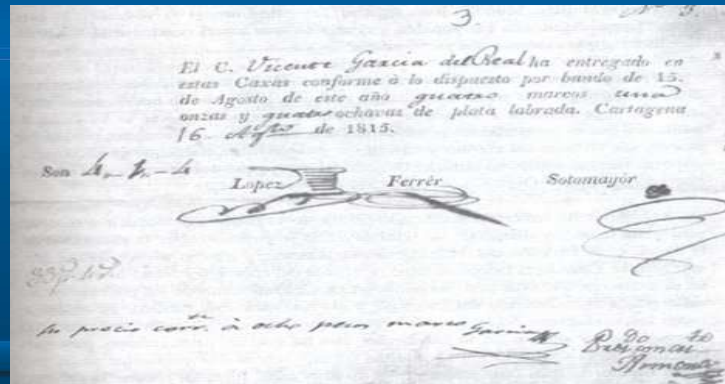 3.
Nº 3.
El C. Vicente Garcia del Real ha entregado en
estas Caxas conforme à lo dispuesto por bando de 15.
de Agosto de este año quatro marcos una
onzas y quatro ochavas de plata labrada. Cartagena
16. Agto de 1815.
Son 4
Lopez Ferrér Sotomayór
su precio corrte à ocho pesos marco Garcia